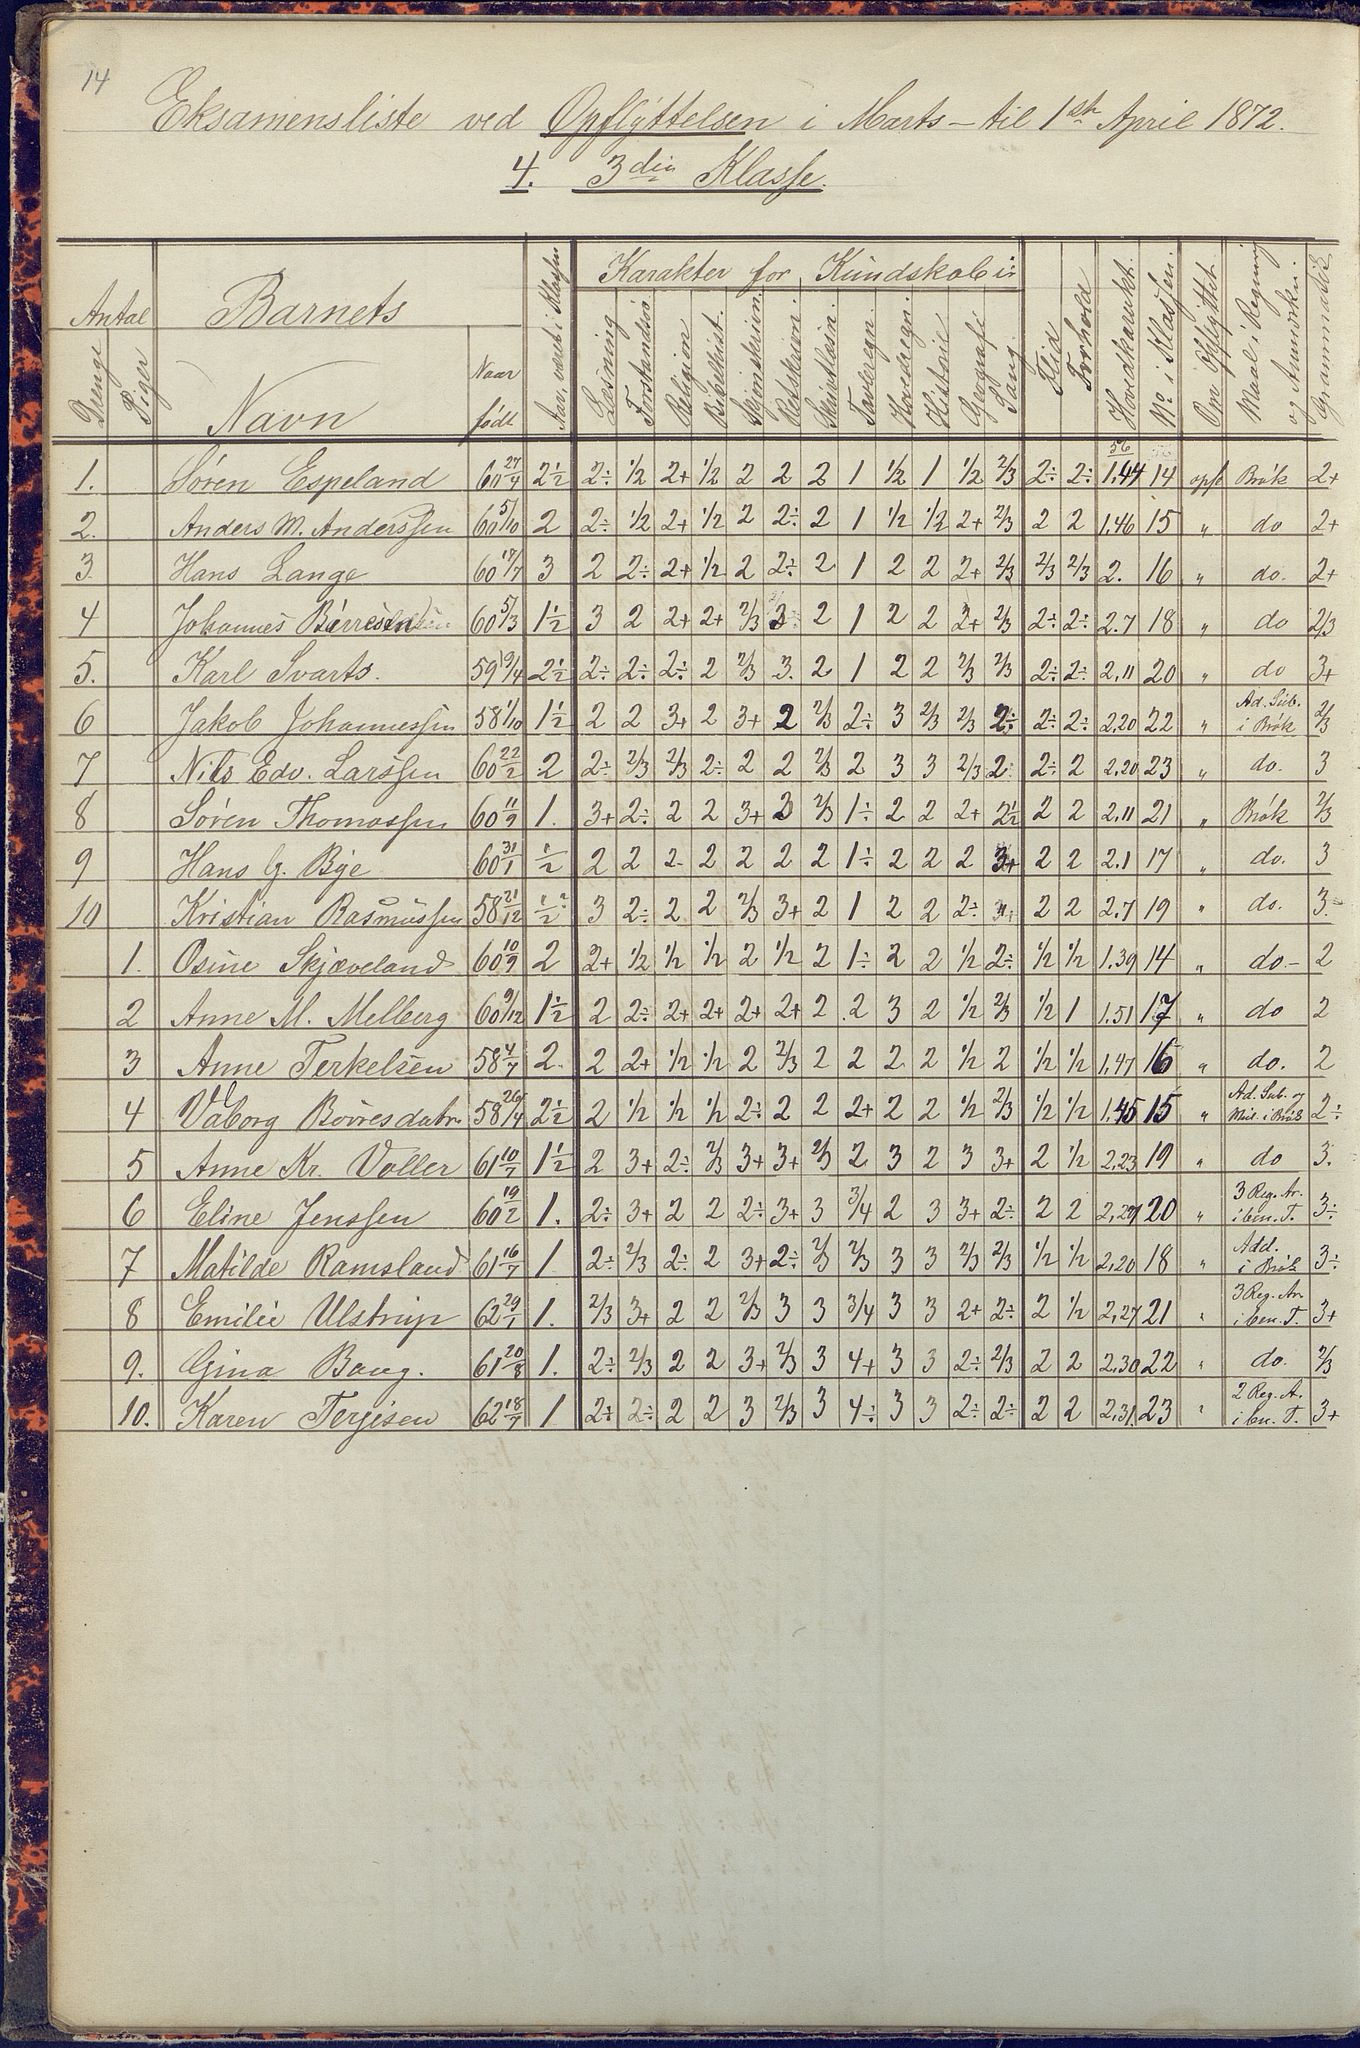 14
Eksamensliste ved Opflyttelsen i Marts - til 1ste April 1872.
4. 3die Klasse.
Antal Drenge Piger Barnets Navn Naar født Aar, været i Klassen Karakter for Kundskab i: Læsning Religion Bibelhist. Skjønskrivn. Retskrivn. Skriftlæsn. Tavleregn. Hovedregn. Historie Geografi Sang Flid Forhold Hovedkarakt. No i Klassen. Om Opflyttet Maal i Regning og Anmærkn. Grammatik
1. Søren Espeland 60 27/4 2 1/2 2÷ 1/2 2+ 1/2 2 2 2 1 1/2 1 1/2 2/3 2÷ 2÷ 56 1.44 14 opf. Brøk 2+
2. Anders M. Anderssen 60 5/10 2 2÷ 1/2 2+ 1/2 2 2÷ 2 1 1/2 1/2 2+ 2/3 2 2 1.46 15 " do 2+
3. Hans Lange 60 17/7 3 2 2÷ 2+ 1/2 2 2÷ 2 1 2 2 2+ 2/3 2/3 2/3 2. 16 " do. 2+
4 Johannes 60 5/3 1 1/2 3 2 2+ 2+ 2/3 3 2 1 2 2 2+ 2/3 2÷ 2÷ 2.7 18 " do 2/3
5. Karl Svarts. 59 19/4 2 1/2 2÷ 2÷ 2÷ 2 2/3 3. 2 1 2 2 2/3 2/3 2÷ 2÷ 2.11 20 " do 3+
6 Jakob Johannessen 58 1/10 1 1/2 2 2 3+ 2 3+ 2 2/3 2÷ 3 2/3 2/3 2÷ 2÷ 2÷ 2.20 22 " Ad. Sub. i Brøk 2/3
7 Nils Edv. Larssen 60 22/2 2 2÷ 2/3 2/3 2÷ 2 2 2/3 2 3 3 2/3 2 2÷ 2 2.20 23 " do. 3
8 Søren Thomassen 60 11/9 1. 3+ 2÷ 2 2 3+ 2 2/3 1÷ 2 2 2+ 2 1/2 2 2 2.11 21 " Brøk 2/3
9 Hans G. Bye 60 31/1 1/2 2 2 2 2 2 2 2 1÷ 2 2 2 3+ 2 2 2.1 17 " do. 3
10 Kristian Rasmussen 58 21/12 1/2 3 2÷ 2 2 2/3 3+ 2 1 2 2 2÷ 3+ 2 2 2.7 19 " do. 3
1. Osine Skjæveland 60 10/9 2 2+ 1/2 1/2 1/2 2 1/2 2 1÷ 2 2 1/2 2÷ 1/2 1/2 1.39 14 " do - 2
2 Anne M. Melberg 60 9/12 1 1/2 2 2÷ 2+ 2+ 2+ 2+ 2 2 3 2 1/2 2/3 1/2 1 1.51 17 " do 2
3 Anne Terkelsen 58 4/7 2. 2 2+ 1/2 1/2 2 2/3 2 2 2 2 1/2 2 1/2 1/2 1.47 16 " do. 2
4 Vaborg Børresdatr. 58 26/4 2 1/2 2 1/2 1/2 1/2 2÷ 2 2 2+ 2 2 1/2 2/3 1/2 1/2 1.45 15 " Ad. Sub. og Mul. i Brøk 2÷
5 Anne Kr. Voller 61 10/7 1 1/2 2 3+ 2÷ 2/3 3+ 3+ 2/3 2 3 2 3 3+ 2 1/2 2.23 19 " do 3.
6 Eline Jenssen 60 19/2 1. 2÷ 3+ 2 2 2÷ 3+ 3 3/4 2 3 3+ 2÷ 2 2 2.27 20 " 3 Reg. Ar. i ben. T. 3÷
7 Matilde Ramsland 61 16/7 1 2÷ 2/3 2÷ 2 3+ 2÷ 2/3 2/3 3 3 2/3 2/3 1/2 1/2 2.20 18 " Add. i Brøk 3÷
8 Emilie Ulstrup 62 29/1 1. 2/3 3+ 2 2 2/3 3 3 3/4 3 3 2+ 2÷ 2 1/2 2.27 21 " 3 Reg. Ar. i ben. T. 3+
9. Gina Baug. 61 20/8 1. 2÷ 2/3 2 2 3+ 2/3 3 4+ 3 3 2÷ 2/3 2 2 2.30 22 " do. 2/3
10. Karen Terjesen 62 18/7 1 2÷ 2÷ 2 2 3 2/3 3 4÷ 3 3 2÷ 2÷ 2 2 2.31. 23 " 2 Reg. A. i ben. T. 3+